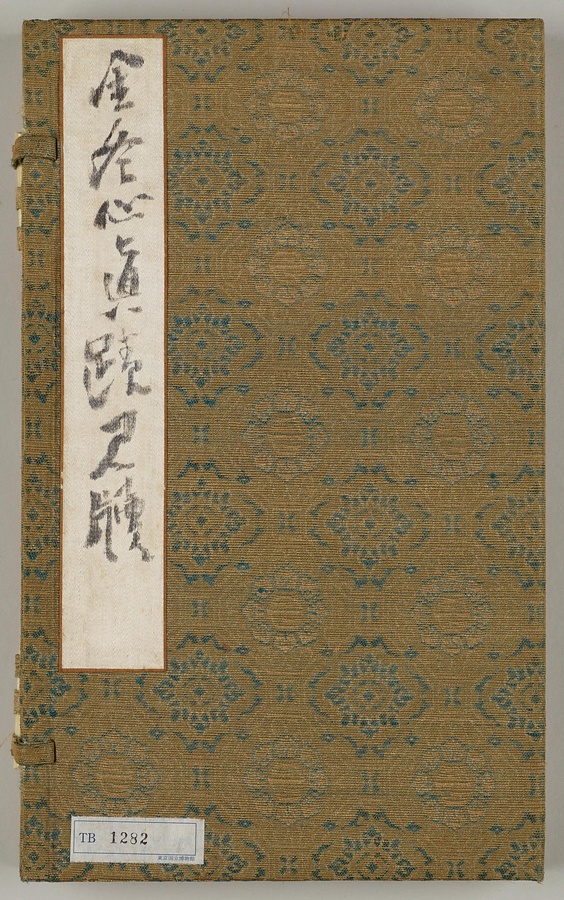 金冬心眞蹟尺牘
TB 1282
東京国立博物館